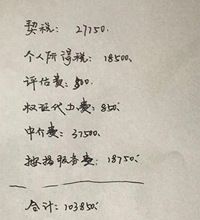 契税: 27750.
个人所得税: 18500、
评估费: 500、
权证代办费: 850、
中介费: 37500、
按揭服务费: 18750、
合计: 103850、